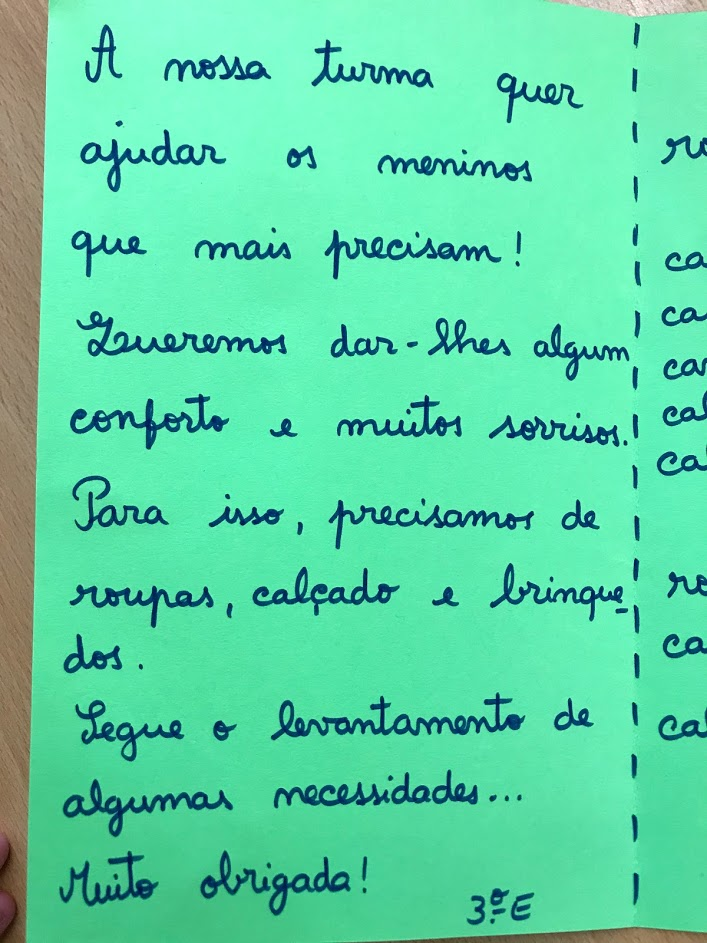 A nossa turma quer
ajudar os meninos
que mais precisam!
Queremos dar-lhes algum
conforto e muitos sorrisos.
Para isso, precisamos de
roupas, calçado e brinque-
dos.
Segue o levantamento de
algumas necessidades...
Muito obrigada!
3.º E